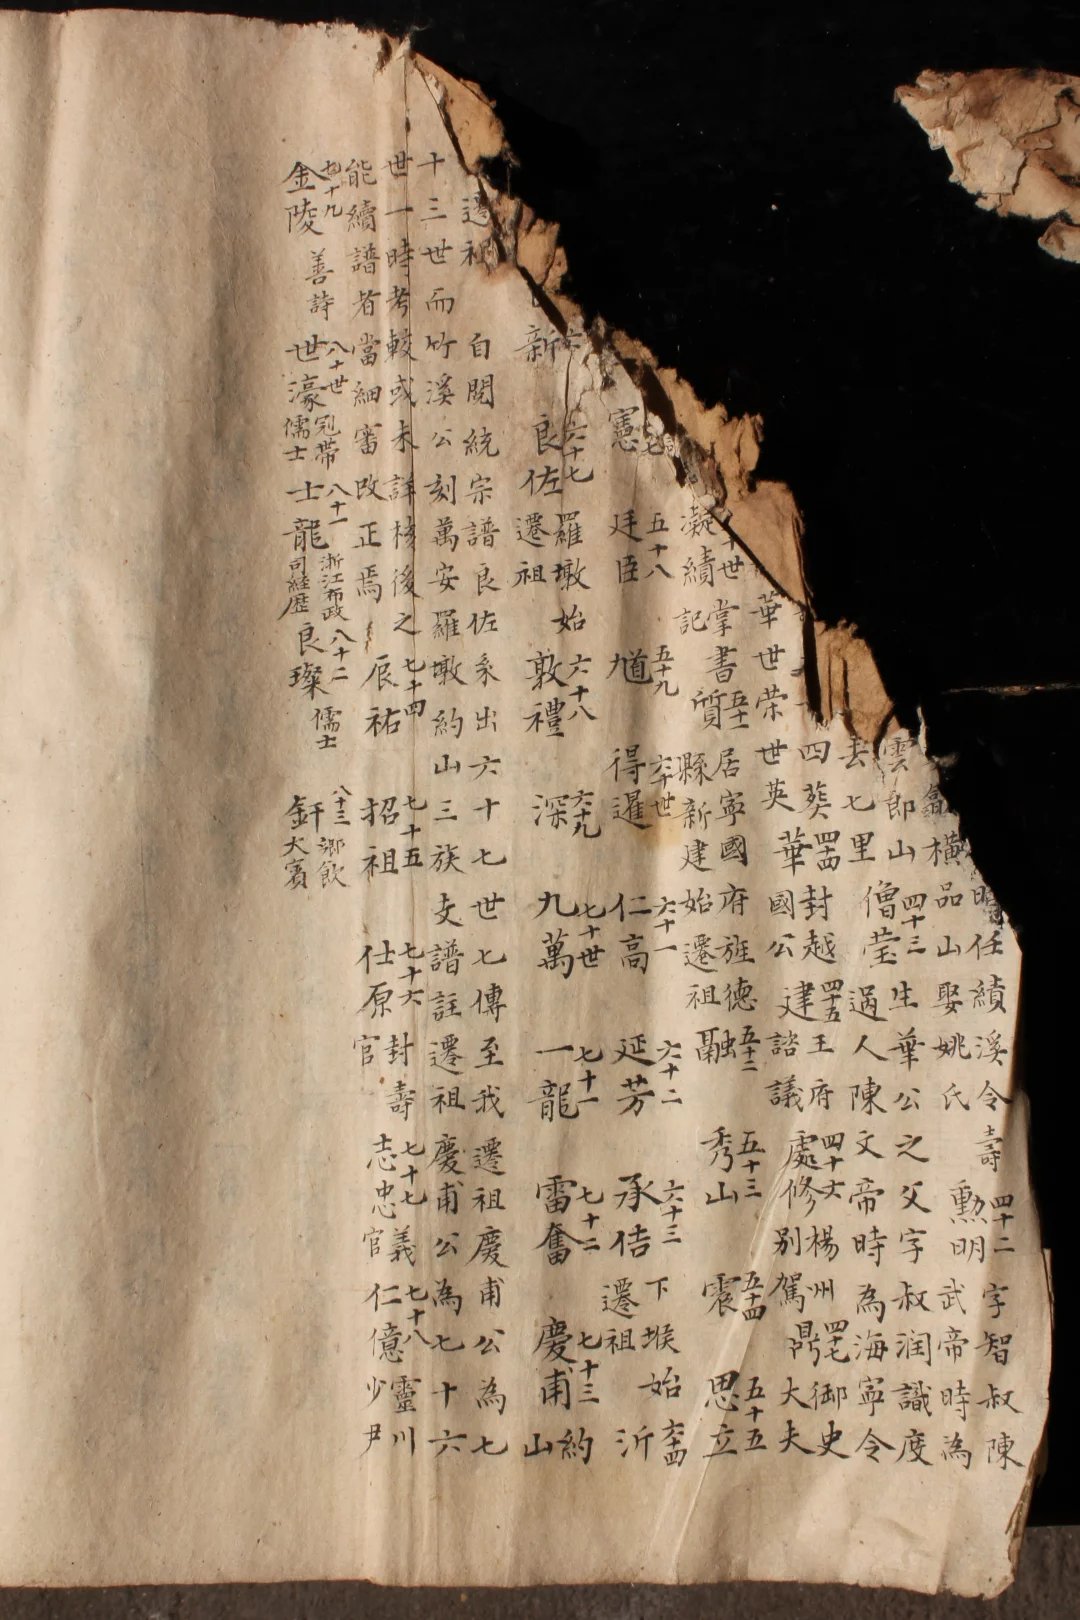 任績溪令 壽 四十二 勳明 字智叔陳
橫品山娶姚氏 武帝時為
雲郎山 四十三 僧莹 生華公之父字叔润識度
去七里 過人陳文帝時為海寧令
四葵 華 四十四 封越國公 建 四十五 王府諮議 處修 四十六 楊州別駕 四十七 御史大夫
華世荣 世英
十世 凝績 掌書記 質 五十一 居寧國府旌德縣新建始遷祖 融 五十二 秀山 五十三 震 五十四 思立 五十五
憲 廷臣 五十八 五十九 得暹 六十世 仁高 六十一 延芳 六十二 承佶 六十三 下堠始遷祖 沂 六十四
新 良佐 六十七 羅墩始遷祖 敦禮 六十八 深 六十九 九萬 七十世 一龍 七十一 雷奮 七十二 慶甫 七十三 約山
遷祖 自閱統宗譜良佐系出六十七世七傳至我遷祖慶甫公為七
十三世而竹溪公刻萬安羅墩約山三族支譜註遷祖慶甫公為七十六
世一時考較或未詳核後之
能續譜者當細審改正焉 辰祐 七十四 招祖 七十五 仕原 七十六 封壽官 志忠 七十七 義官 仁億 七十八 靈川少尹
金陵 七十九 善詩 世濠 八十世 冠帶儒士 士龍 八十一 浙江布政司経歴 良璨 八十二 儒士 釬 八十三 鄉飲大賓